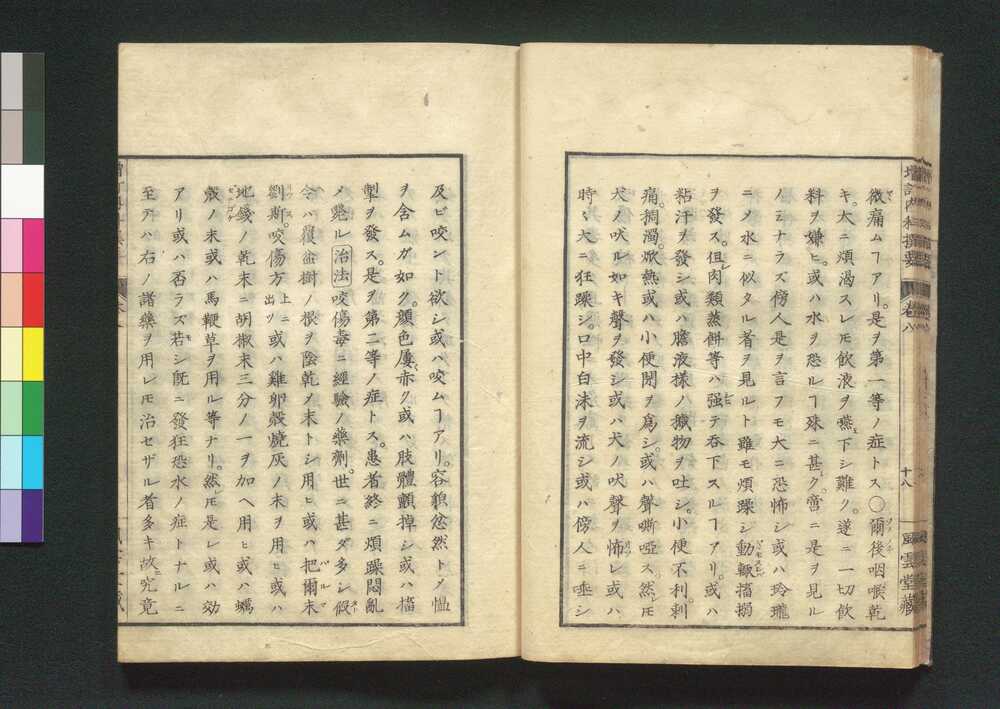 微痛ムヿアリ。是ヲ第一等ノ症トス〇爾後咽喉乾
キ。大ニ煩渇スレ𪜈飲液ヲ嚥下シ難ク。遂ニ一切飲
料ヲ嫌ヒ。或ハ水ヲ恐ルヿ殊ニ甚ク。啻ニ是ヲ見ル
ノミナラズ傍人是ヲ言フモ大ニ恐怖シ或ハ玲瓏
ニノ水ニ似タル者ヲ見ルト雖モ煩躁シ動輙搐搦
ヲ發ス。但肉類蒸餅等ハ强テ呑下スルヿアリ。或ハ
粘汗ヲ發シ或ハ膽液様ノ穢物ヲ吐シ。小便不利刺
痛。稠濁。焮熱或ハ小便閉ヲ爲シ。或ハ聲嘶啞ス然𪜈
犬ノ吠ル如キ聲ヲ發シ或ハ犬ノ吠聲ヲ怖レ或ハ
時々大ニ狂躁シ。口中白沫ヲ流シ或ハ傍人ニ唾シ
増訂内科撰要 卷八 十八 風雲堂藏
及ビ咬ント欲シ或ハ咬ムヿアリ。容貌忿然トノ慍
ヲ含ムガ如ク。顔色屢赤ク或ハ肢體顫掉シ或ハ搐
掣ヲ發ス。是ヲ第二等ノ症トス。患者終ニ煩躁悶亂
ノ斃ル 治法 咬傷毒ニ經驗ノ藥劑。世ニ甚ダ多シ假
令ハ覆盆樹ノ根ヲ陰乾ノ末トシ用ヒ或ハ把爾末
劉斯。咬傷方上ニ出ツ或ハ雞卵殻燒灰ノ末ヲ用ヒ或ハ
地錢ノ乾末ニ胡椒末三分ノ一ヲ加ヘ用ヒ或ハ蠣
殻ノ末或ハ馬鞭草ヲ用ル等ナリ。然𪜈是レ或ハ効
アリ或ハ否ラズ若シ既ニ發狂恐水ノ症トナルニ
至テハ右ノ諸藥ヲ用レ𪜈治セザル者多キ故究竟